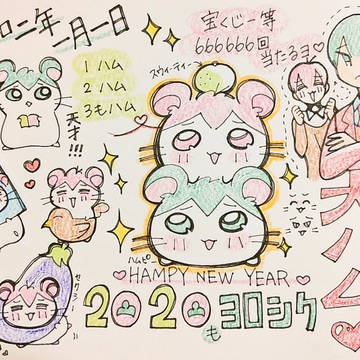 二年一月一日
宝くじ一等
666666回
当たるヨ♡
スウィーティー→
1 ハム
2 ハム
3もハム
天才!!!
ハムピ
♡HAMPY NEW YEAR♡
2020もヨロシク
セクスィ〜